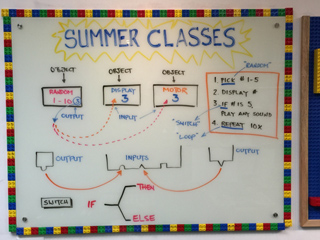 SUMMER CLASSES
OBJECT OBJECT OBJECT
RANDOM 1-10 3
DISPLAY 3
MOTOR 3
OUTPUT INPUT
"RANDOM"
1. PICK # 1-5
2. DISPLAY #
3. IF # IS 5,
PLAY ANY SOUND
4. REPEAT 10X
"SWITCH"
"LOOP"
OUTPUT INPUTS OUTPUT
SWITCH IF THEN
ELSE